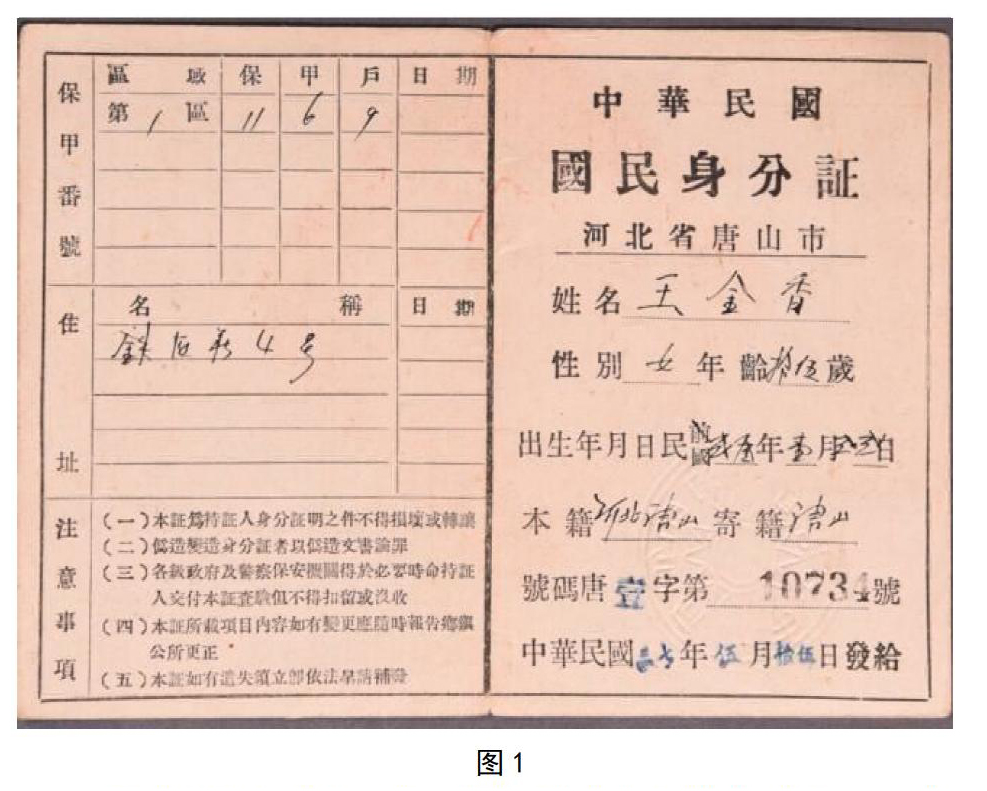 保甲番號
區域 保 甲 戶 日期
第1區 11 6 9
住址
名稱 日期
4号
注意事項
(一)本証為持証人身分証明之件不得損壞或轉讓
(二)偽造變造身分証者以偽造文書論罪
(三)各級政府及警察保安機關得於必要時命持証
人交付本証查驗但不得扣留或沒收
(四)本証所載項目內容如有變更應隨時報告鄉鎮
公所更正
(五)本証如有遺失須立即依法呈請補發
中華民國
國民身分証
河北省唐山市
姓名 王金香
性別 女 年齡 拾伍歲
出生年月日民國前 年 月 日
本籍 河北唐山 寄籍 唐山
號碼唐壹字第 10734號
中華民國三七年伍月拾伍日發給
图1